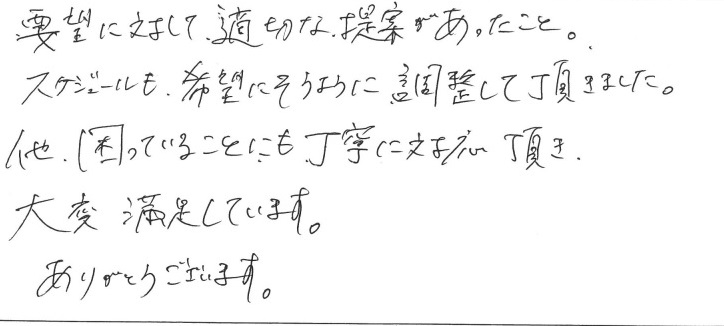 要望に対して、適切な提案があったこと。
スケジュールも、希望にそうように調整して頂きました。
他、困っていることにも丁寧に対応頂き、
大変満足しています。
ありがとうございます。